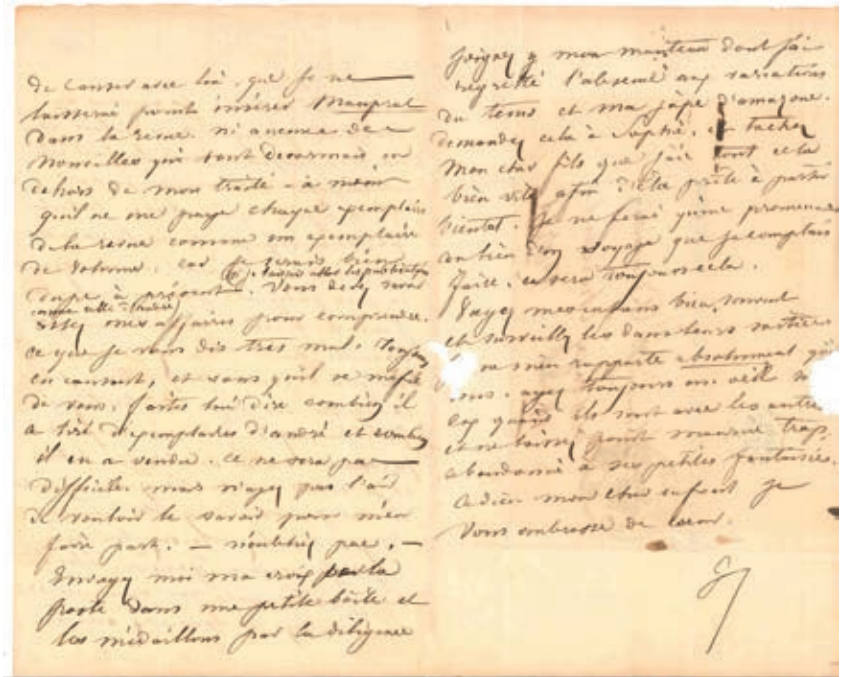 de causer avec lui, que je ne
laisserai point insérer Mauprat
dans la revue. ni aucune des
nouvelles qui sont desormais en
dehors de mon traité à moins
qu'il ne me paye chaque exemplaire
de la revue comme un exemplaire
de volume. car je serais bien
dupe à présent. Vous devez savoir
assez mes affaires pour comprendre
ce que je vous dis très mal. Toujours
en causant, et sans qu'il se méfie
de vous, faites lui dire combien il
a tiré d'exemplaires d'andré et combien
il en a vendu. ce ne sera pas
difficile. mais n'ayez pas l'air
de vouloir le savoir pour m'en
faire part. — n'oubliez pas. —
Envoyez moi ma croix par la
poste dans une petite boîte et
les médaillons par la diligence
joignez y mon manteau dont j'ai
regretté l'absence aux variations
du tems et ma jupe d'amazone.
demandez cela à Sophie. et tachez
Mon cher fils que j'aie tout cela
bien vite afin d'être prête à partir
bientot. Je ne ferai qu'une promenade
au lieu d'un voyage que je comptais
faire. ce sera toujours cela.
Voyez mes enfans bien souvent
et surveillez les dans leurs sorties
je m'en rapporte absolument à
vous. ayez toujours un œil sur
eux quand ils sont avec les autres
et ne laissez point maurice trop
abandonné à ses petites fantaisies.
adieu mon cher enfant je
vous embrasse de cœur.